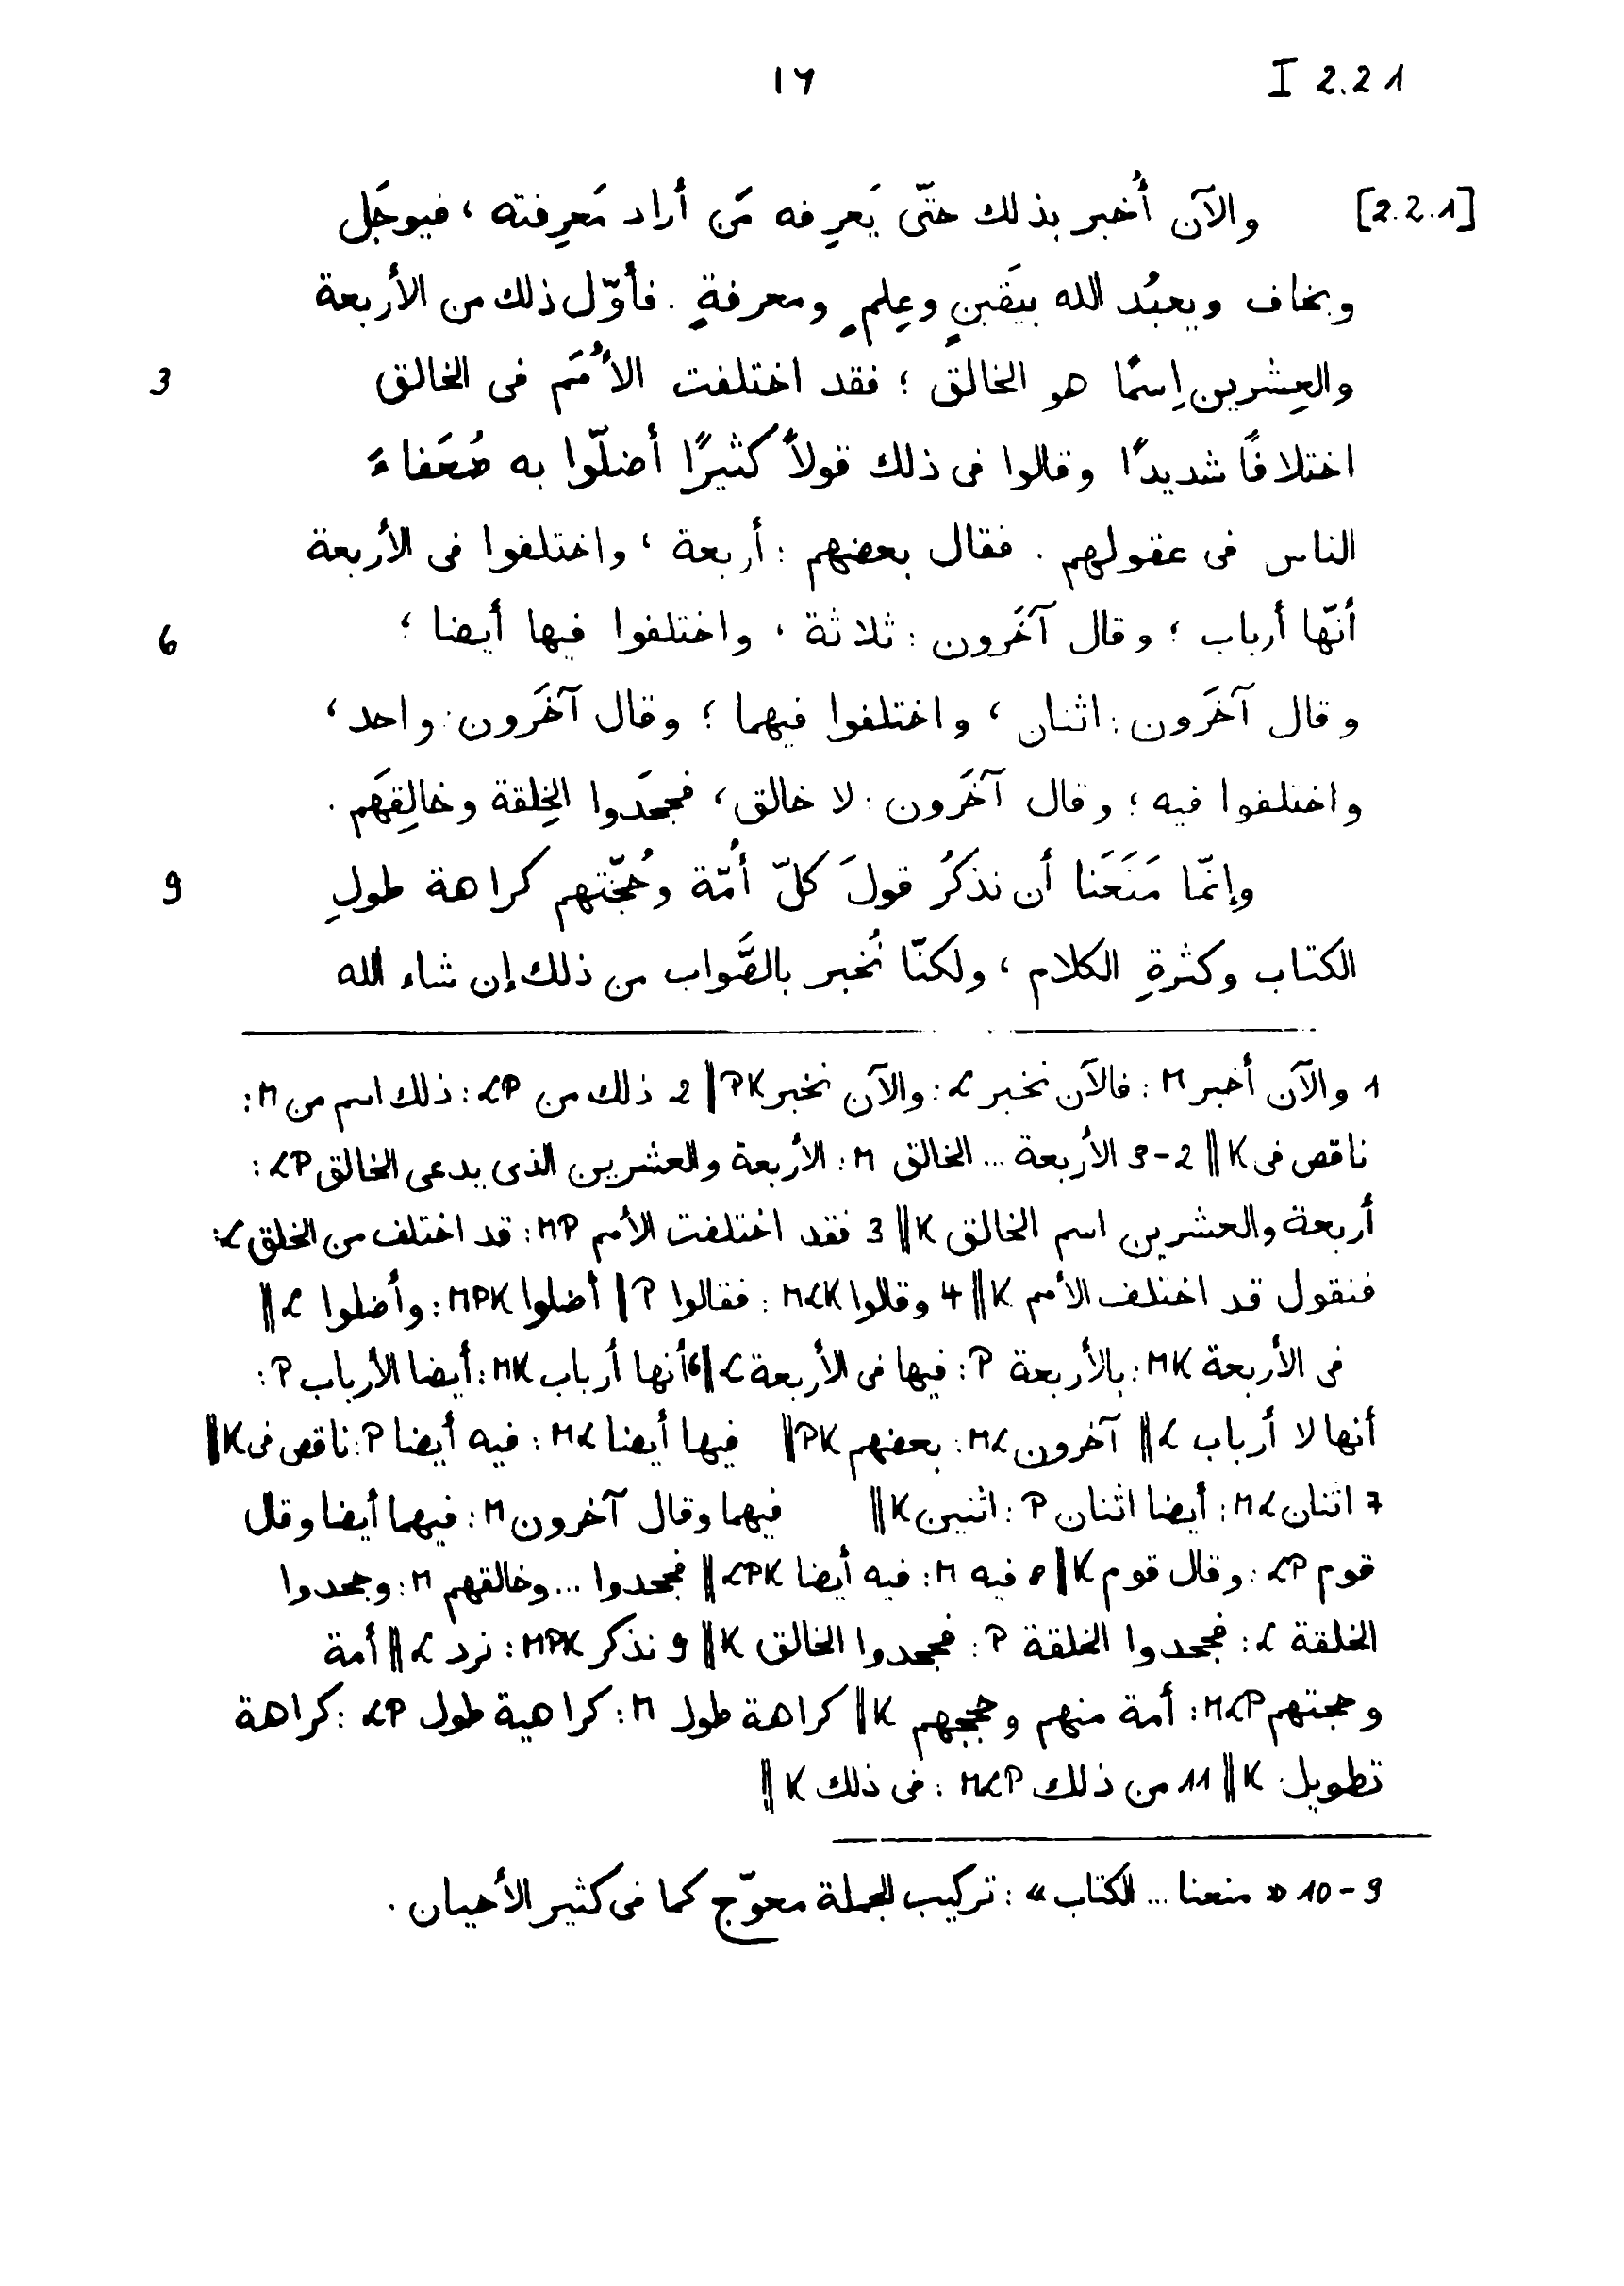 I 2.21 ١٧
[2.2.1] والآن أُخبر بذلك حتّى يَعرِفه مَن أراد مَعرِفته ، فيوجَل
ويخاف ويعبُد الله بيَقينٍ وعِلمٍ ومعرفةٍ . فأوّل ذلك من الأربعة
والعِشرين إسمًا هو الخالق ؛ فقد اختلفت الأُمَم فى الخالق 3
اختلافًا شديدًا وقالوا فى ذلك قولاً كثيرًا أضلّوا به ضُعَفاءَ
الناس فى عقولهم . فقال بعضهم : أربعة ، واختلفوا فى الأربعة
أنّها أرباب ؛ وقال آخَرون : ثلاثة ، واختلفوا فيها أيضا ؛ 6
وقال آخَرون : اثنان ، واختلفوا فيهما ؛ وقال آخَرون : واحد ،
واختلفوا فيه ؛ وقال آخَرون : لا خالق ، فجحَدوا الخِلقة وخالِقَهم .
وإنّما مَنَعَنا أن نذكُر قولَ كلّ أُمّة وحُجّتهم كراهة طولِ 9
الكتاب وكثرةِ الكلام ، ولكنّا نُخبر بالصَّواب من ذلك إن شاء الله
1 والآن أخبر M : فالآن نخبر L : والآن نخبر PK ‖ 2 ذلك من LP : ذلك اسم من M :
ناقص فى K ‖ 2-3 الأربعة ... الخالق M : الأربعة والعشرين الذى يدعى الخالق LP :
أربعة والعشرين اسم الخالق K ‖ 3 فقد اختلفت الأمم MP : قد اختلف من الخلق L :
فنقول قد اختلف الأمم K ‖ 4 وقالوا MLK : فقالوا P ‖ أضلوا MPK : وأضلوا L ‖
فى الأربعة MK : بالأربعة P : فيها فى الأربعة L ‖ 6 أنها أرباب MK : أيضا الأرباب P :
أنها لا أرباب L ‖ آخرون ML : بعضهم PK ‖ فيها أيضا ML : فيه أيضا P : ناقص فى K ‖
7 اثنان ML : أيضا اثنان P : اثنين K ‖ فيهما وقال آخرون M : فيهما أيضا وقال
قوم LP : وقال قوم K ‖ 8 فيه M : فيه أيضا LPK ‖ فجحدوا ... وخالقهم M : وجحدوا
الخلقة L : فجحدوا الخلقة P : فجحدوا الخالق K ‖ 9 نذكر MPK : نرد L ‖ أمة
وحجتهم MLP : أمة منهم وحججهم K ‖ كراهة طول M : كراهية طول LP : كراهة
تطويل K ‖ 11 من ذلك MLP : فى ذلك K ‖
9-10 « منعنا ... الكتاب » : تركيب الجملة معوّج كما فى كثير الأحيان .